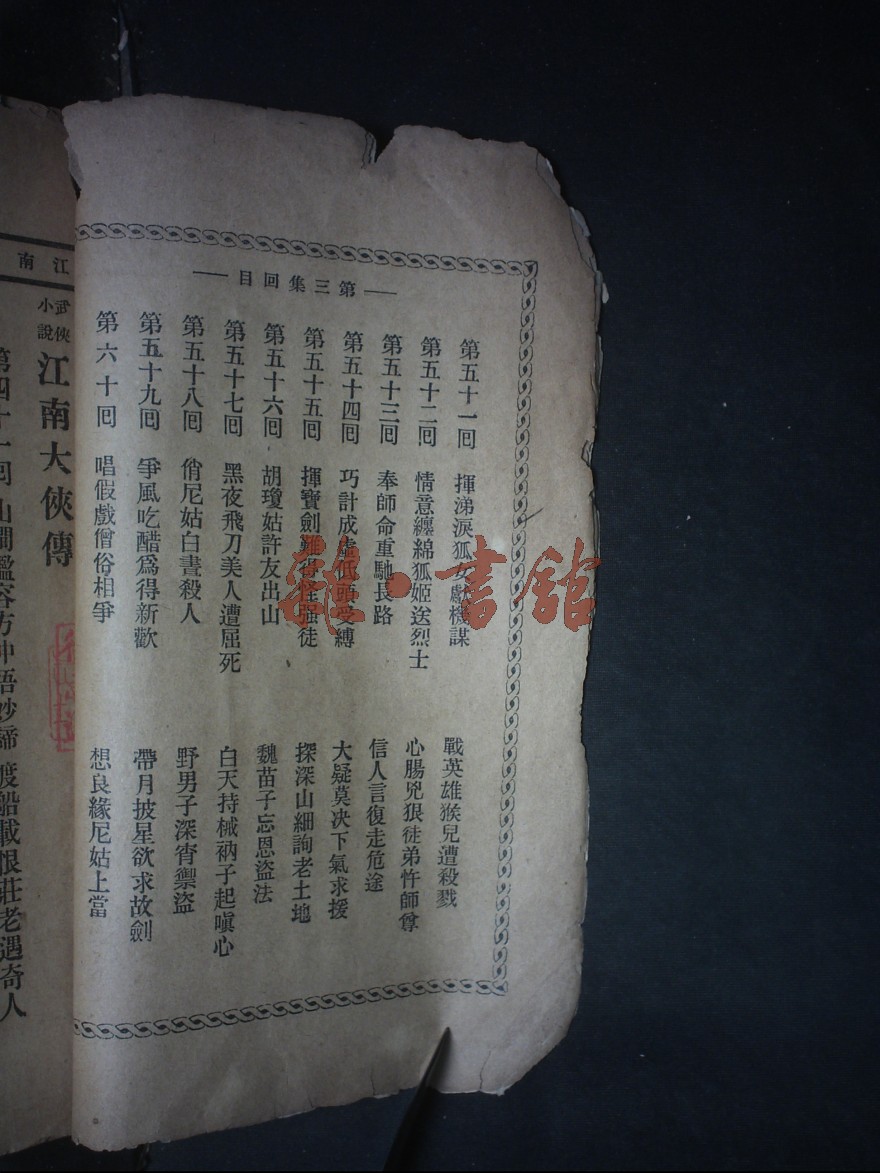 第三集回目
第五十一回 揮涕淚狐女獻機謀 戰英雄猴兒遭殺戮
第五十二回 情意纏綿狐姬送烈士 心腸兇狠徒弟忤師尊
第五十三回 奉師命重馳長路 信人言復走危途
第五十四回 巧計成虛低頭受縛 大疑莫决下氣求援
第五十五回 揮寶劍難得怪强徒 探深山細詢老土地
第五十六回 胡瓊姑許友出山 魏苗子忘恩盜法
第五十七回 黑夜飛刀美人遭屈死 白天持械衲子起嗔心
第五十八回 俏尼姑白晝殺人 野男子深宵禦盜
第五十九回 爭風吃醋爲得新歡 帶月披星欲求故劍
第六十回 唱假戲僧俗相爭 想良緣尼姑上當
江南
武俠小說 江南大俠傳
第四十一回 山澗鑑容方冲吾妙諦 渡船載恨莊老遇奇人
雜·書舘